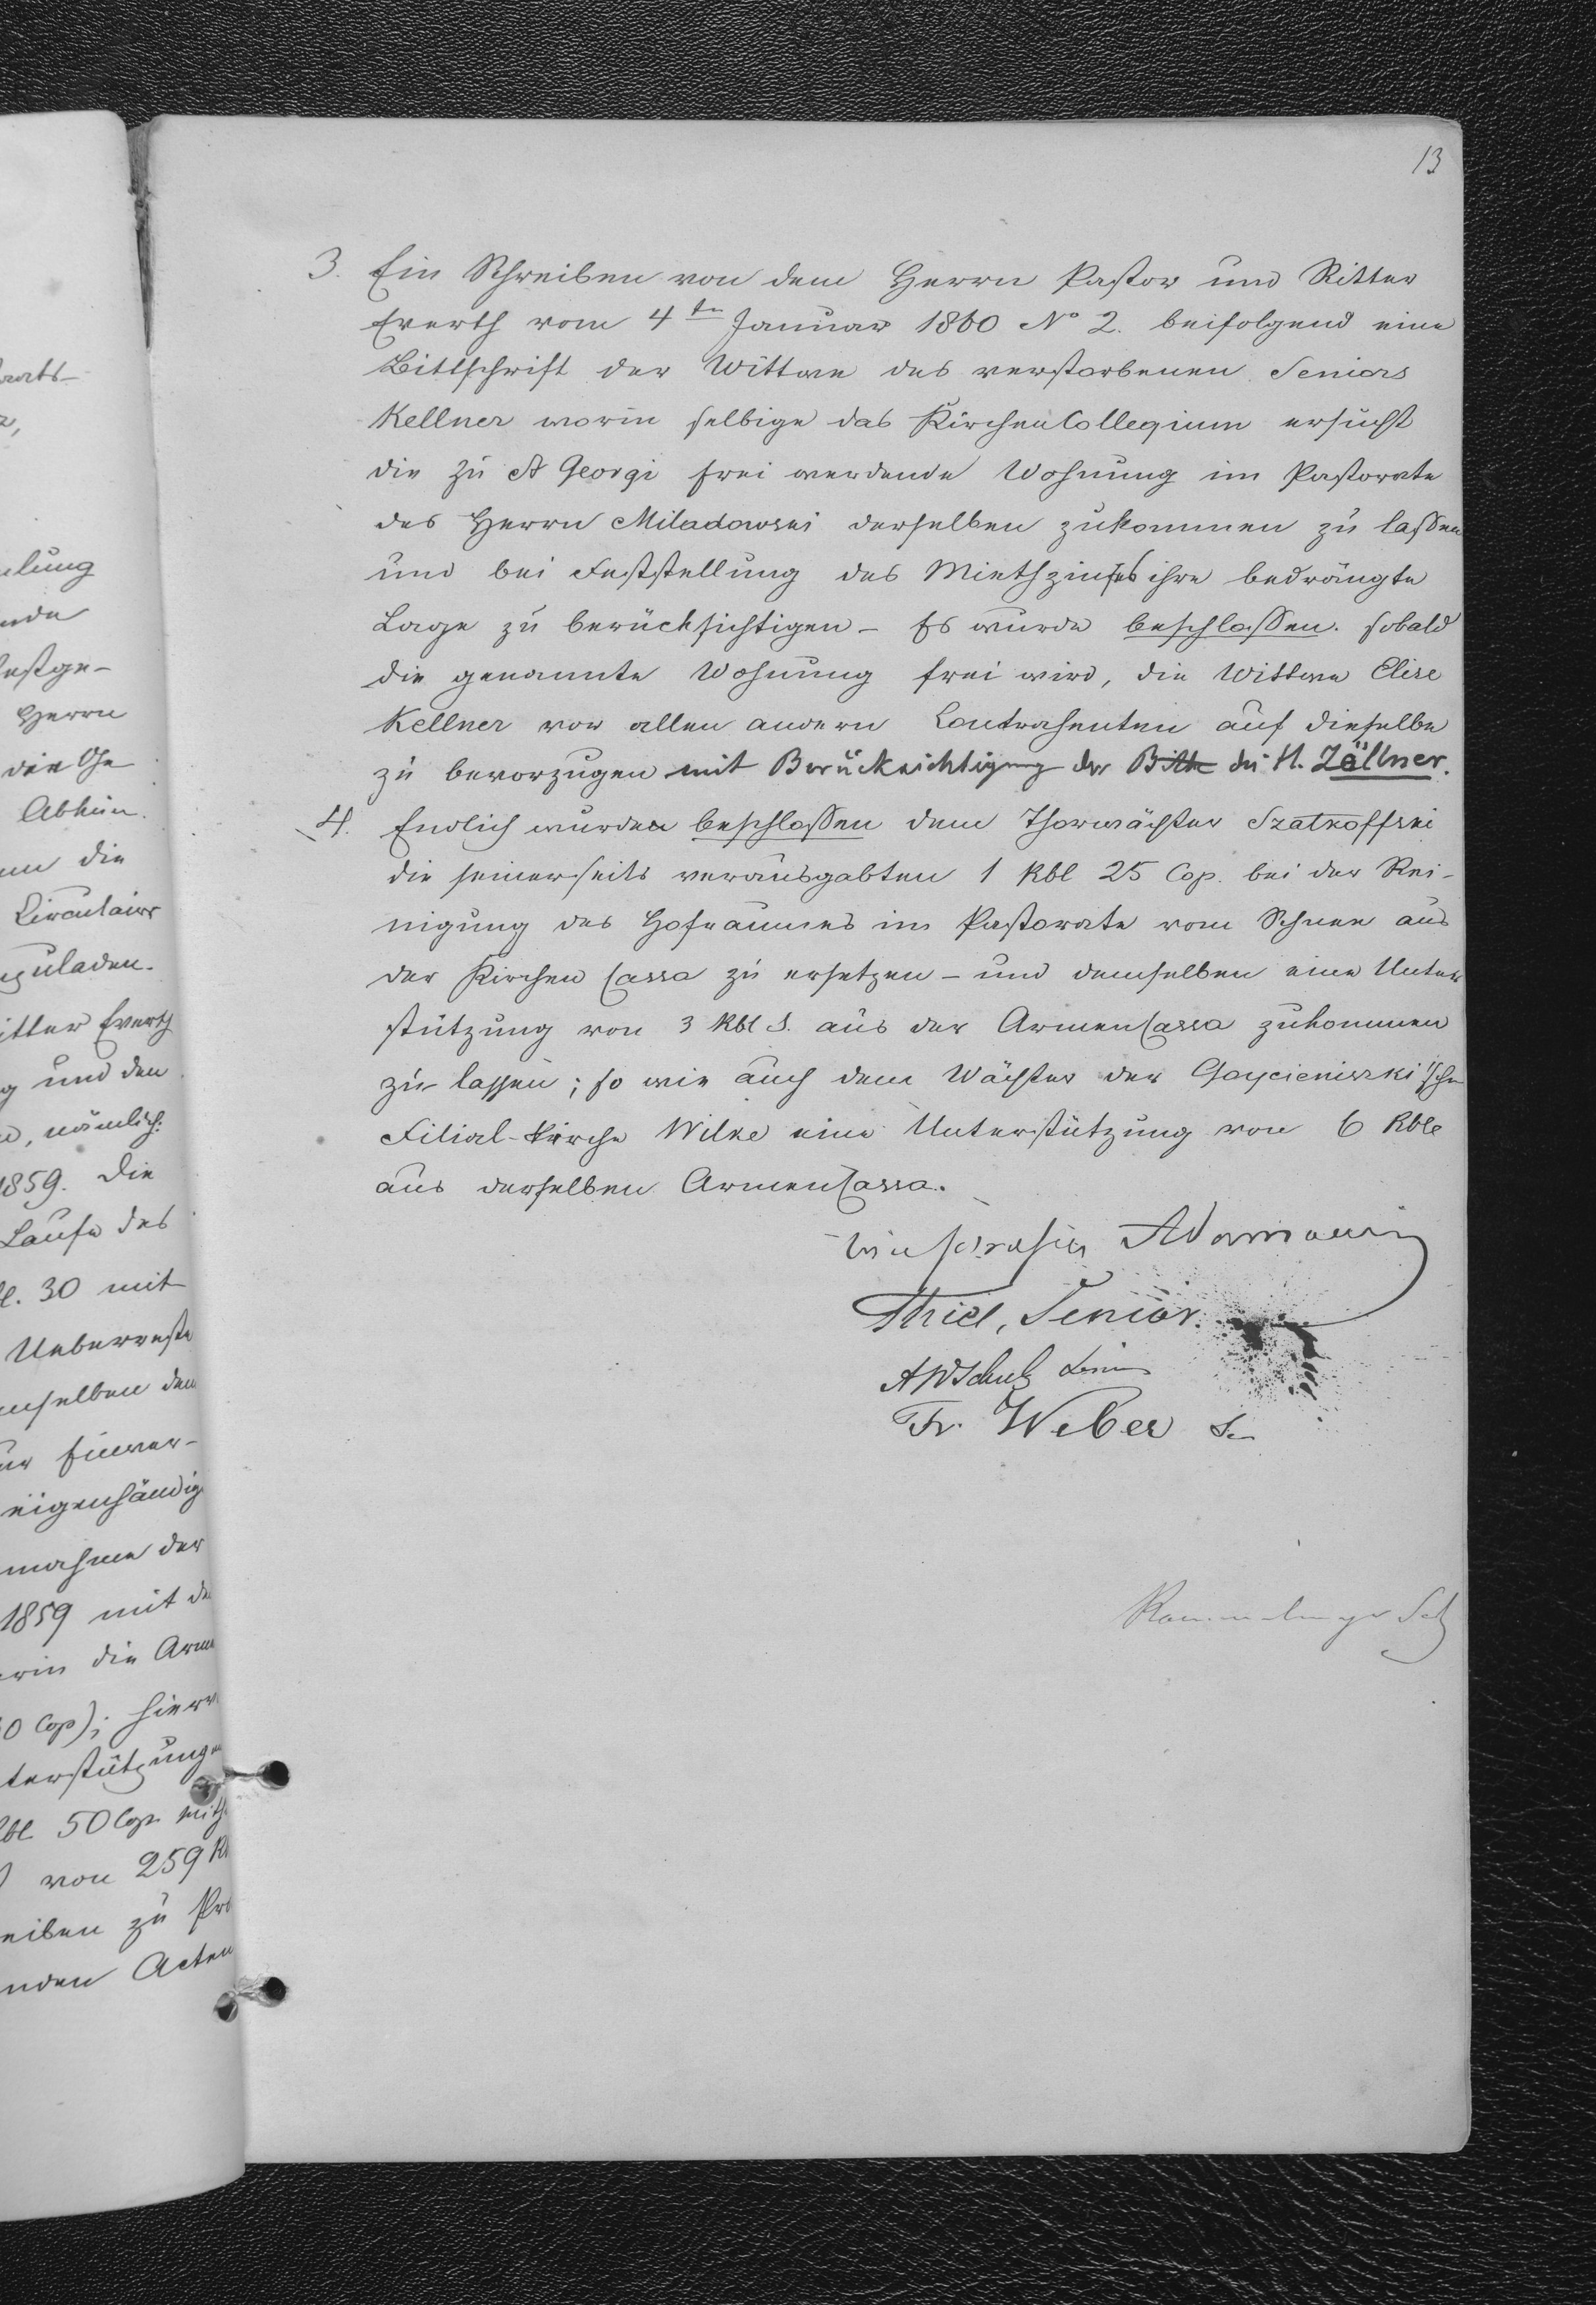 13
3. Ein Schreiben von dem Herrn Pastor und Ritter
Everth vom 4ten Januar 1860 No 2. beifolgend eine
Bittschrift der Wittwe des verstorbenen Seniors
Kellner worin selbige das Kirchen Collegium ersucht
die zu St Georgi frei werdende Wohnung im Pastorate
des Herrn Miladowski derselben zukommen zu lassen
und bei Feststellung des Miethzinses ihre bedrängte
Lage zu berücksichtigen – Es wurde beschlossen. sobald
die genannte Wohnung frei wird, die Wittwe Elise
Kellner vor allen andern Contrahenten auf dieselbe
zu bevorzugen mit Berücksichtigung der Bitte des H. Zöllner.
4. Endlich wurden beschlossen dem Thorwächter Szatkoffski
die seinerseits verausgabten 1 Rbl 25 Cop. bei der Rei-
nigung des Hofraumes im Pastorate vom Schnee aus
der Kirchen Cassa zu ersetzen – und demselben eine Unter
stützung von 3 Rbl S. aus der Armen Cassa zukommen
zu lassen; so wie auch dem Wächter der Gaycieniszki'schen
Filial-Kirche Wilke eine Unterstützung von 6 Rble
aus derselben Armen Cassa.
Adamowi
Thiel, Senior.
A W Schulz Senior
Fr. Weber Se
aats-
r,
elung
ende
festge-
Herrn
die Che
Abhän.
um die
Circulairs
zuladen.
itter Everth
g und den
n, nämlich:
1859. Die
Laufe des
l. 30 mit
Ueberreste
mselben dem
ur Einver-
eigenhändig
nahme der
1859 mit de
rin die Arme
0 Cop); hierv
terstützunge
bl 50 Cop. mith
von 259 R
eiben zu Pro
nden Acten